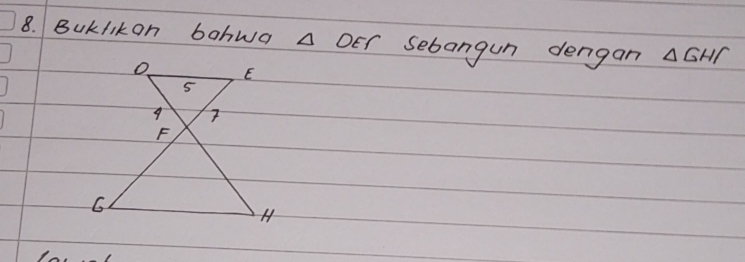 8. Buktikan bahwa Δ DEF sebangun dengan Δ GHF
D E
5
4 7
F
G H